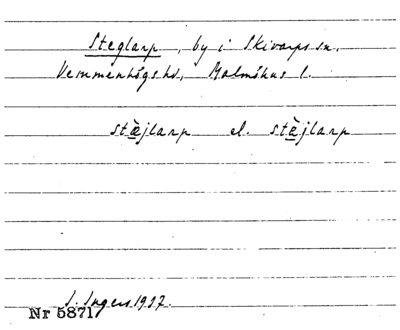 Steglarp, by i Skivarps sn,
Vemmenhögs hd, Malmöhus l.
stæ̀jlarp el. stæ̀jlarp
I. Ingers 1927.
Nr 5871